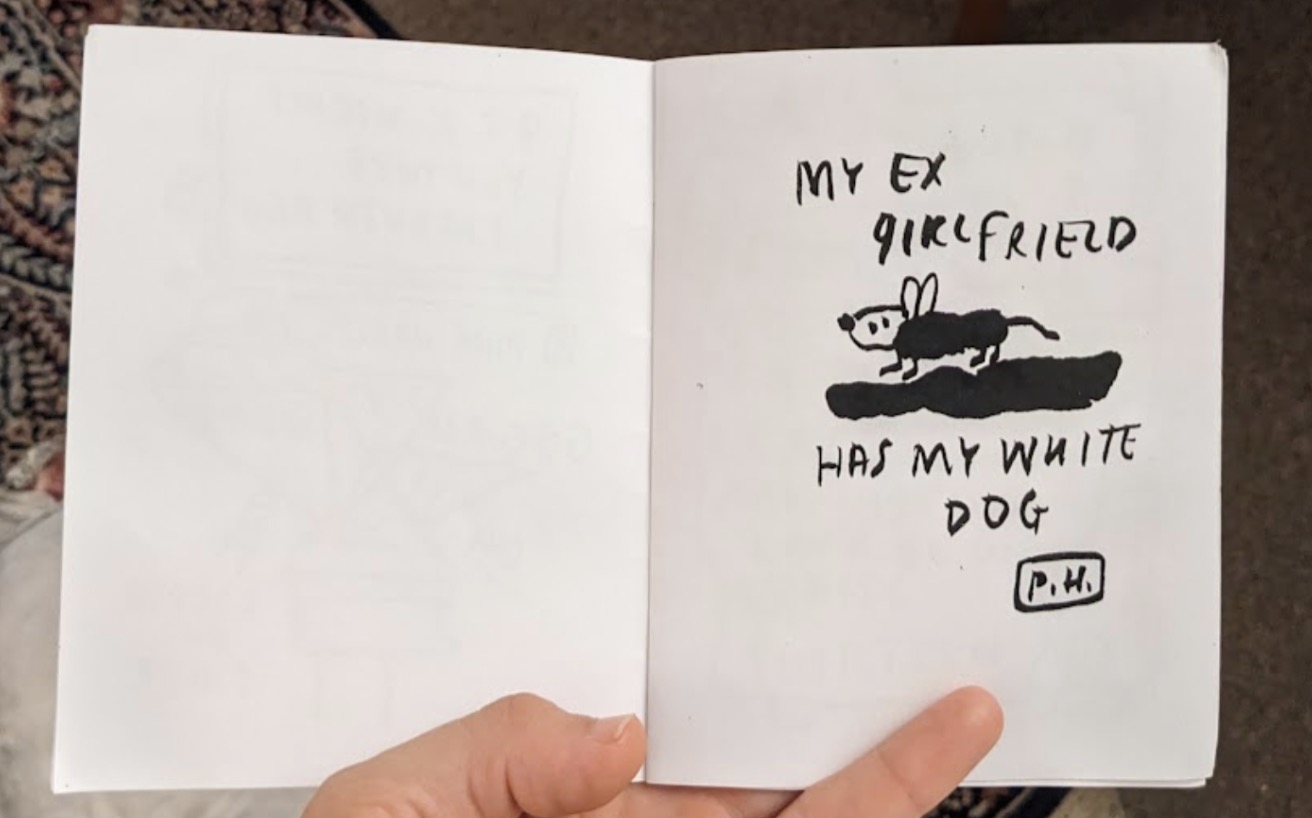 MY EX
GIRLFRIELD
HAS MY WHITE
DOG
P.H.